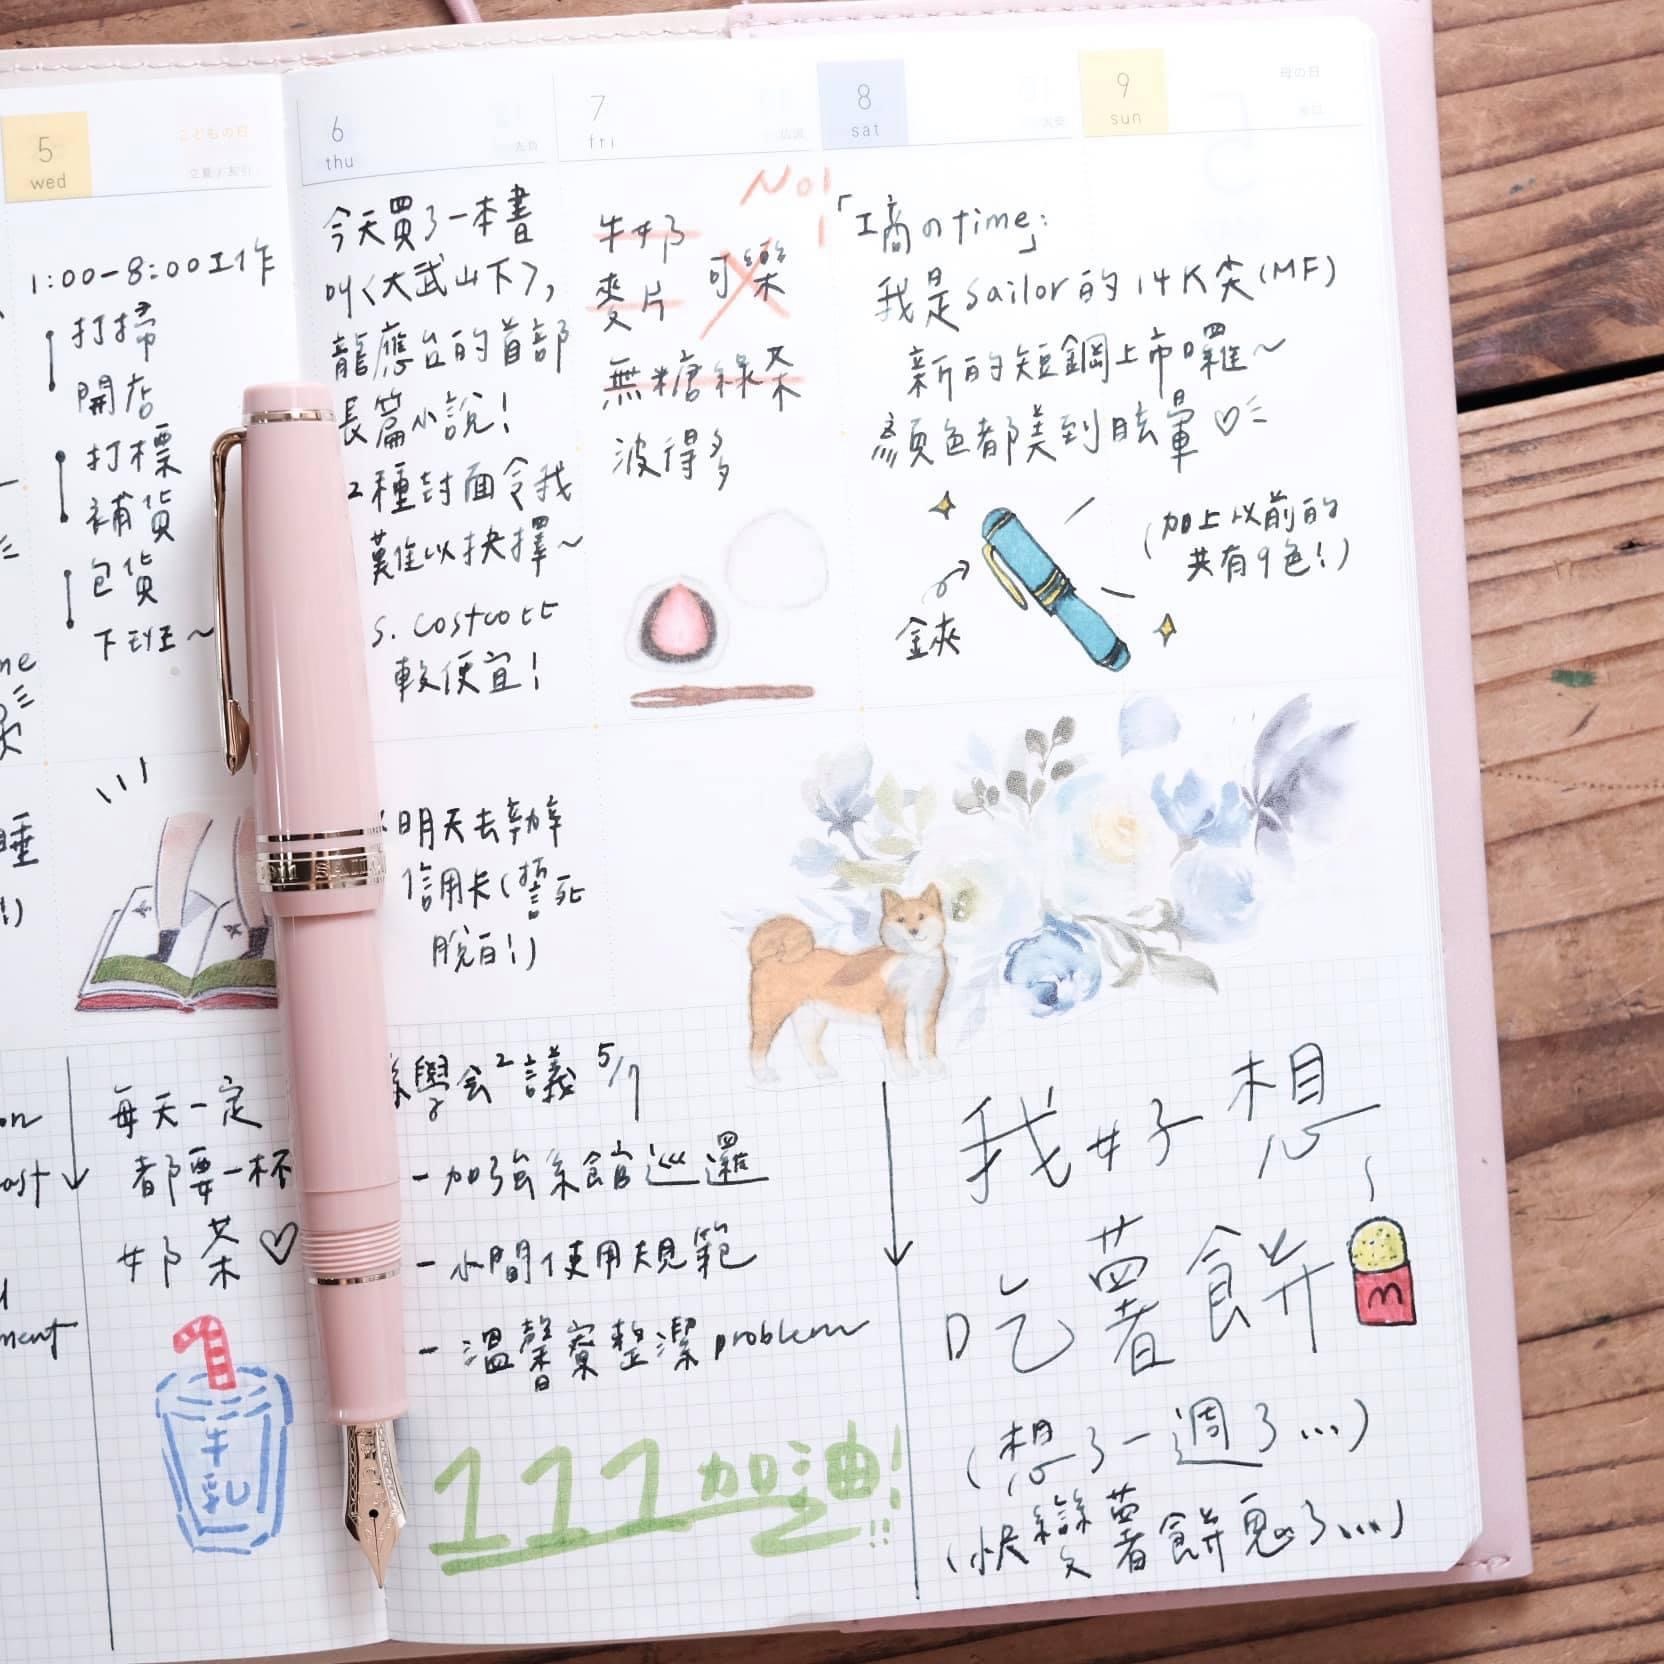 5
wed
こどもの日
立夏/友引
1:00-8:00工作
打掃
開店
打標
補貨
包貨
下班~
6
thu
先負
今天買了一本書
叫<大武山下>,
龍應台的首部
長篇小說!
2種封面令我
難以抉擇~
S. costco比
較便宜!
明天去辦
信用卡(誓死
脫白!)
7
fri
仏滅
No!
牛奶
可樂
麥片
無糖綠茶
波得多
8
sat
大安
9
sun
母の日
「工商のtime」:
我是Sailor的14K尖(MF)
新的短鋼上市囉~
顏色都美到眩暈♡
(加上以前的
共有9色!)
金夾
me
睡
!)
on
ost
ment
每天一定
都要一杯
奶茶♡
牛乳
系學会議 5/7
-加強系館巡邏
-小間使用規範
-溫馨寮整潔problem
111加油!!!
我好想
吃薯餅
m
(想了一週了...)
(快變薯餅鬼了...)